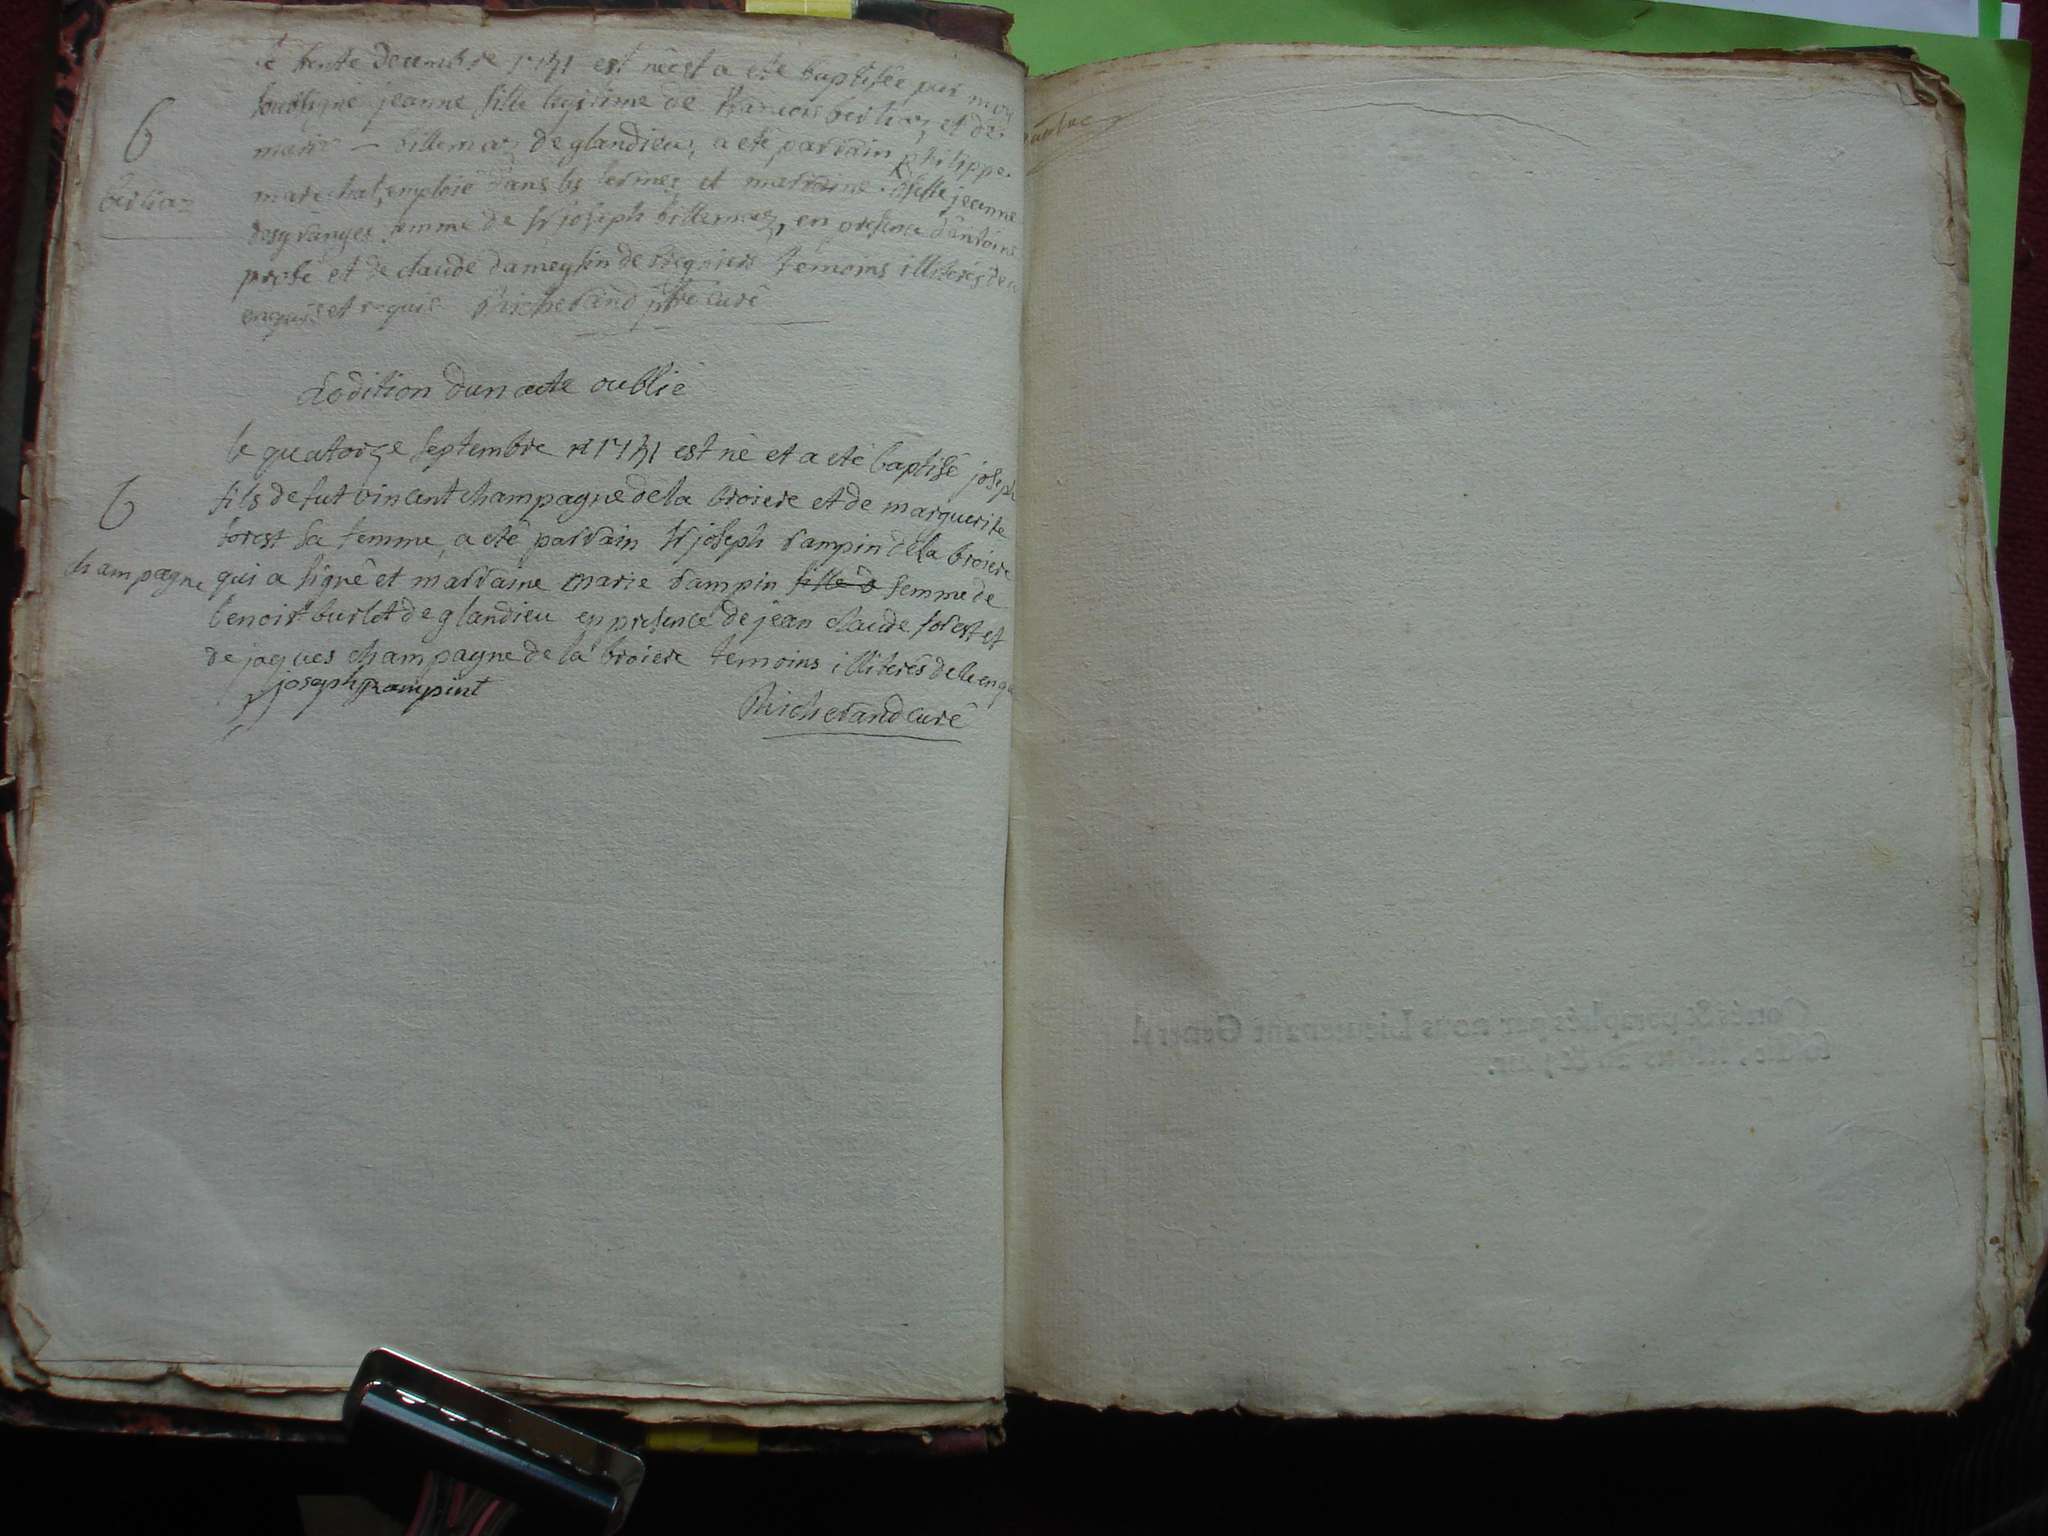 le trente decembre 1741 est néest a eté baptisée par moy
soussigné jeanne fille legitime de francois berlioz, et de
marie - billemaz de glandieu, a eté parrain philippe
marechal, emploié dans les fermes et marraine dslle jeanne
desgranges femme de sr joseph billemaz, en presence d'antoine
et de claude dameylin de temoins illiteres de
enquis et requis Richerand ptre curé
B
berlioz
addition dun acte oublié
le quatorze septembre 1741 est né et a eté baptisé joseph
fils de fut vincent champagne de la broiere et de marguerite
forest sa femme, a eté parrain sr joseph rampin de la broiere
qui a signé et marraine marie rampin fille d femme de
benoist burlet de glandieu en presence de jean claude forest et
de jaques champagne de la broiere temoins illiterés de le enq
B
champagne
joseph rampint
Richerand curé
Cottés & paraphés par nous Lieutenant General